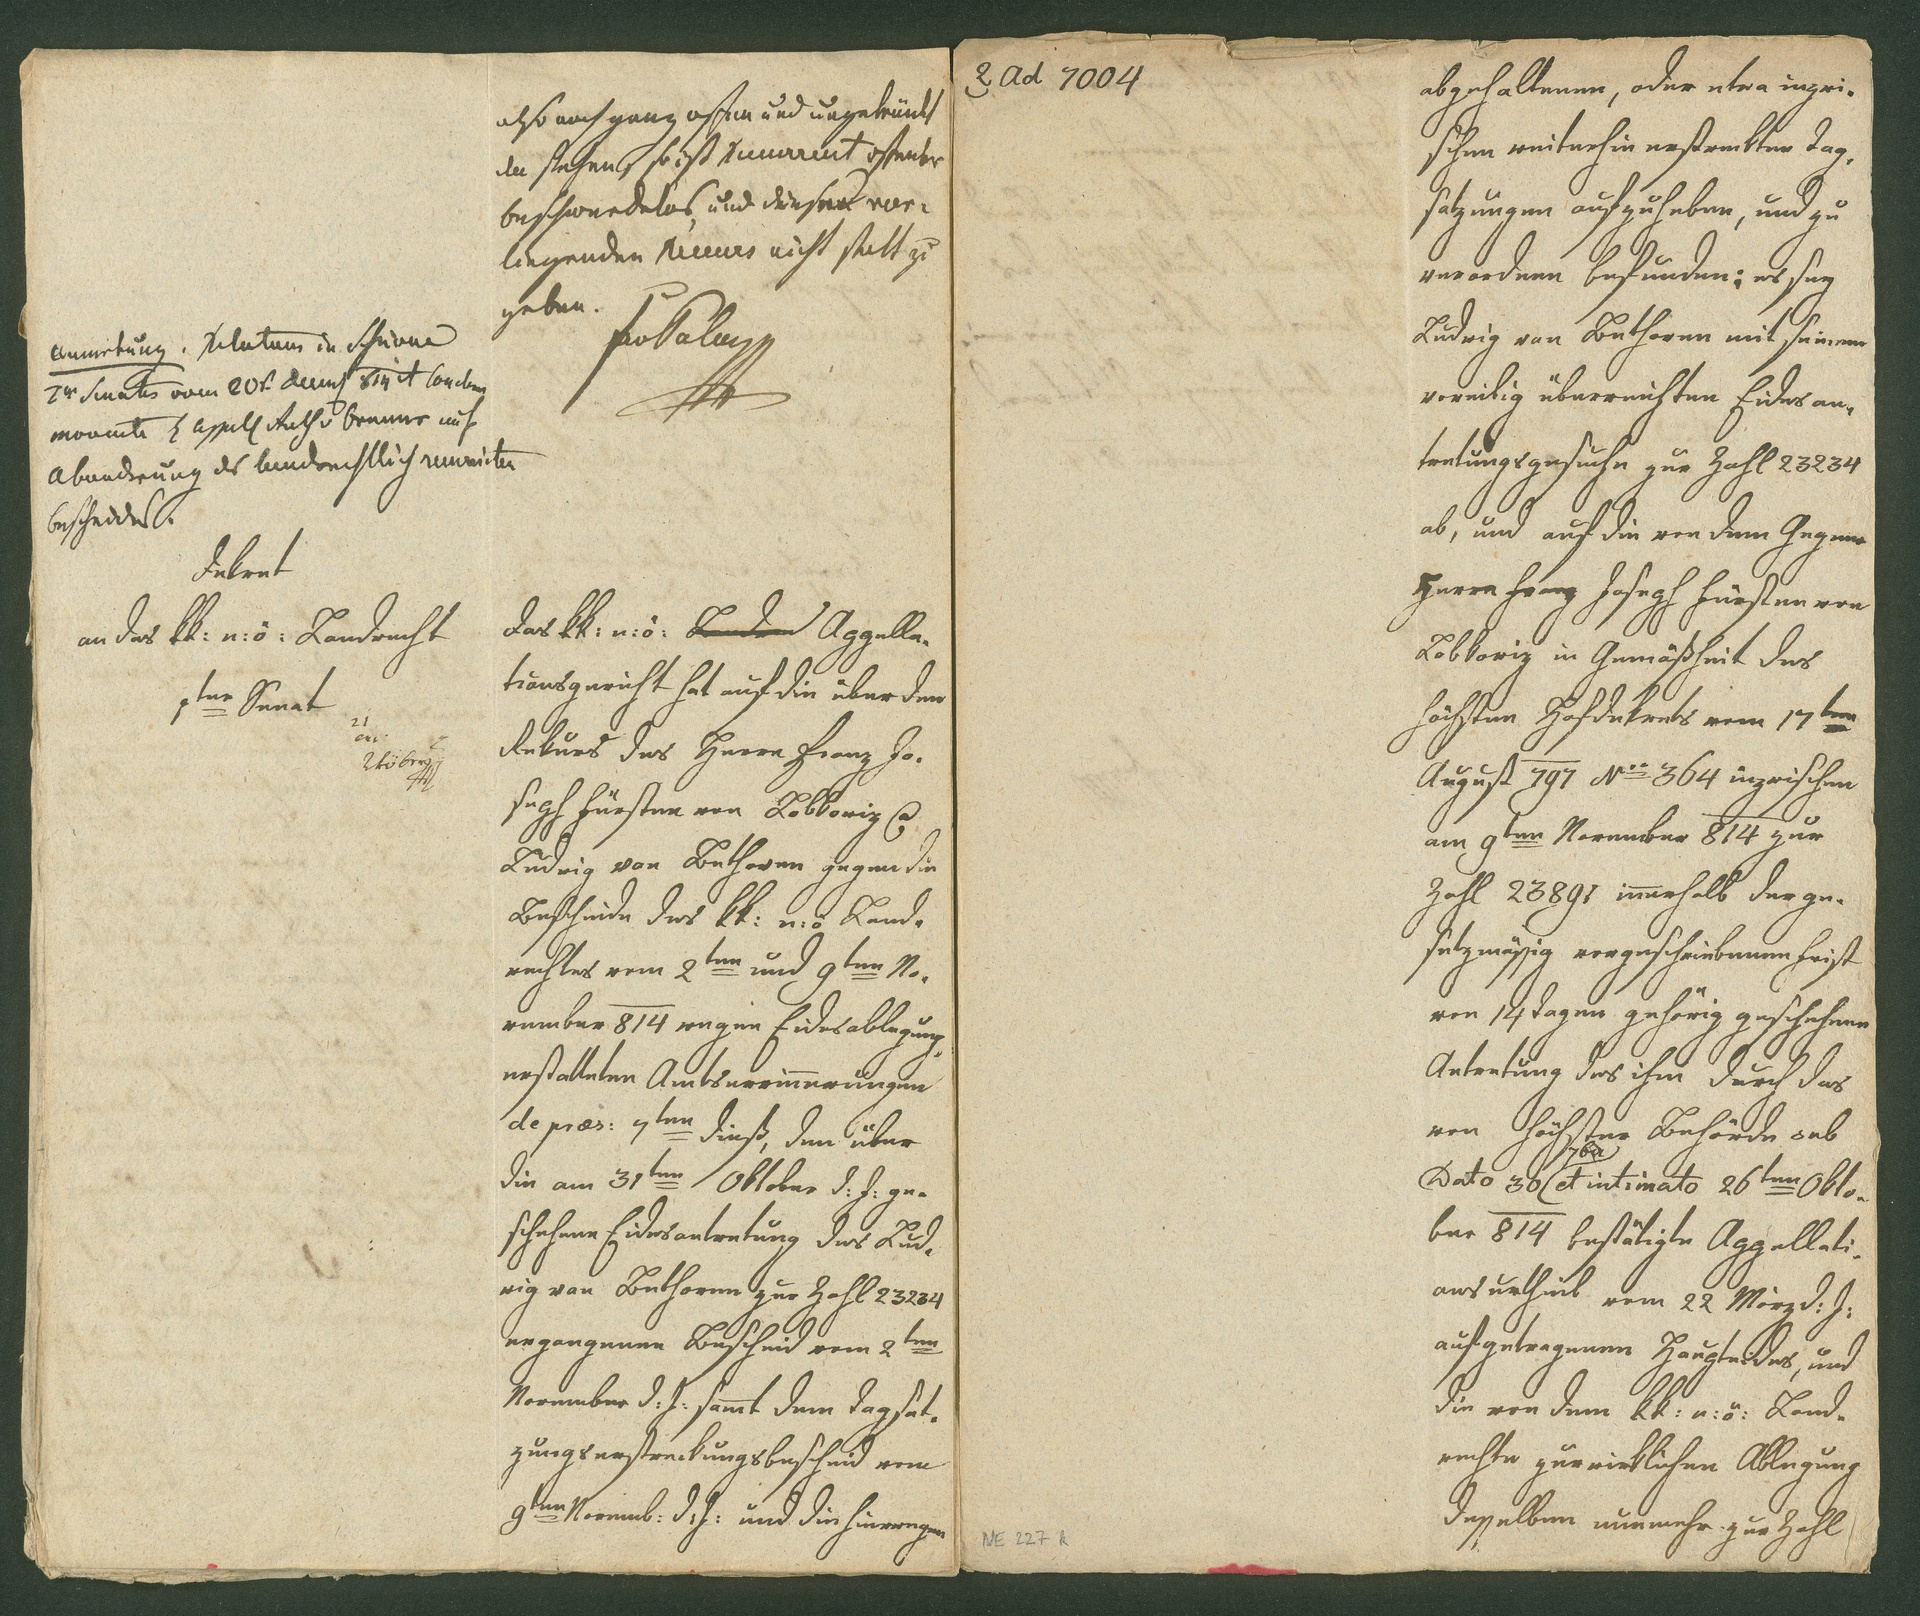 also noch ganz offen und ungekränkt
da stehen, so ist Recurrent offenbar
beschwerdelos, und diesem vor-
liegenden Recurs nicht statt zu
geben.
Anmerkung. Relatum in
Senates vom 20t.
Appell Rath v
Abänderung des landrechtlich recurrirten
Bescheides.
Dekret
an das kk: n: ö: Landrecht
1ter Senat
21
Das kk: n: ö: Landrec Appella-
tionsgericht hat auf die über den
Rekurs des Herrn Franz Jo-
seph Fürsten von Lobkowiz Ca
Ludwig van Bethoven gegen die
Bescheide des kk: n: ö Land-
rechtes vom 2ten und 9ten No-
vember 814 wegen Eidesablegung
erstatteten Amtserinnerungen
de præs: 7ten dieß, den über
die am 31ten Oktober d: J: ge-
schehene Eidesantretung des Lud-
wig van Bethoven zur Zahl 23234
ergangenen Bescheid vom 2ten
November d: J: sammt dem Tagsat-
zungserstreckungsbescheid vom
9ten Novemb: d: J: und die hierwegen
2 Ad 7004
abgehaltenen, oder etwa inzwi-
schen weiterhin erstreckten Tag-
satzungen aufzuheben, und zu
verordnen befunden: es sey
Ludwig van Bethoven mit seinem
voreilig überreichten Eidesan-
tretungsgesuche zur Zahl 23234
ab, und auf die von dem Gegner
Herrn Franz Joseph Fürsten von
Lobkowiz in Gemäßheit des
höchsten Hofdekrets vom 17ten
August 797 Nro 364 inzwischen
am 9ten November 814 zur
Zahl 23891 innerhalb der ge-
setzmässig vorgeschriebenen Frist
von 14 Tagen gehörig geschehene
Antretung des ihm durch das
von höchster Behörde sub
7ber
Dato 30 et intimato 26ten Okto-
ber 814 bestätigte Appellati-
onsurtheil vom 22 März d: J:
aufgetragenen Haupteides, und
die von dem kk: n: ö: Land-
rechte zur wirklichen Ablegung
desselben nunmehr zur Zahl
NE 227 k